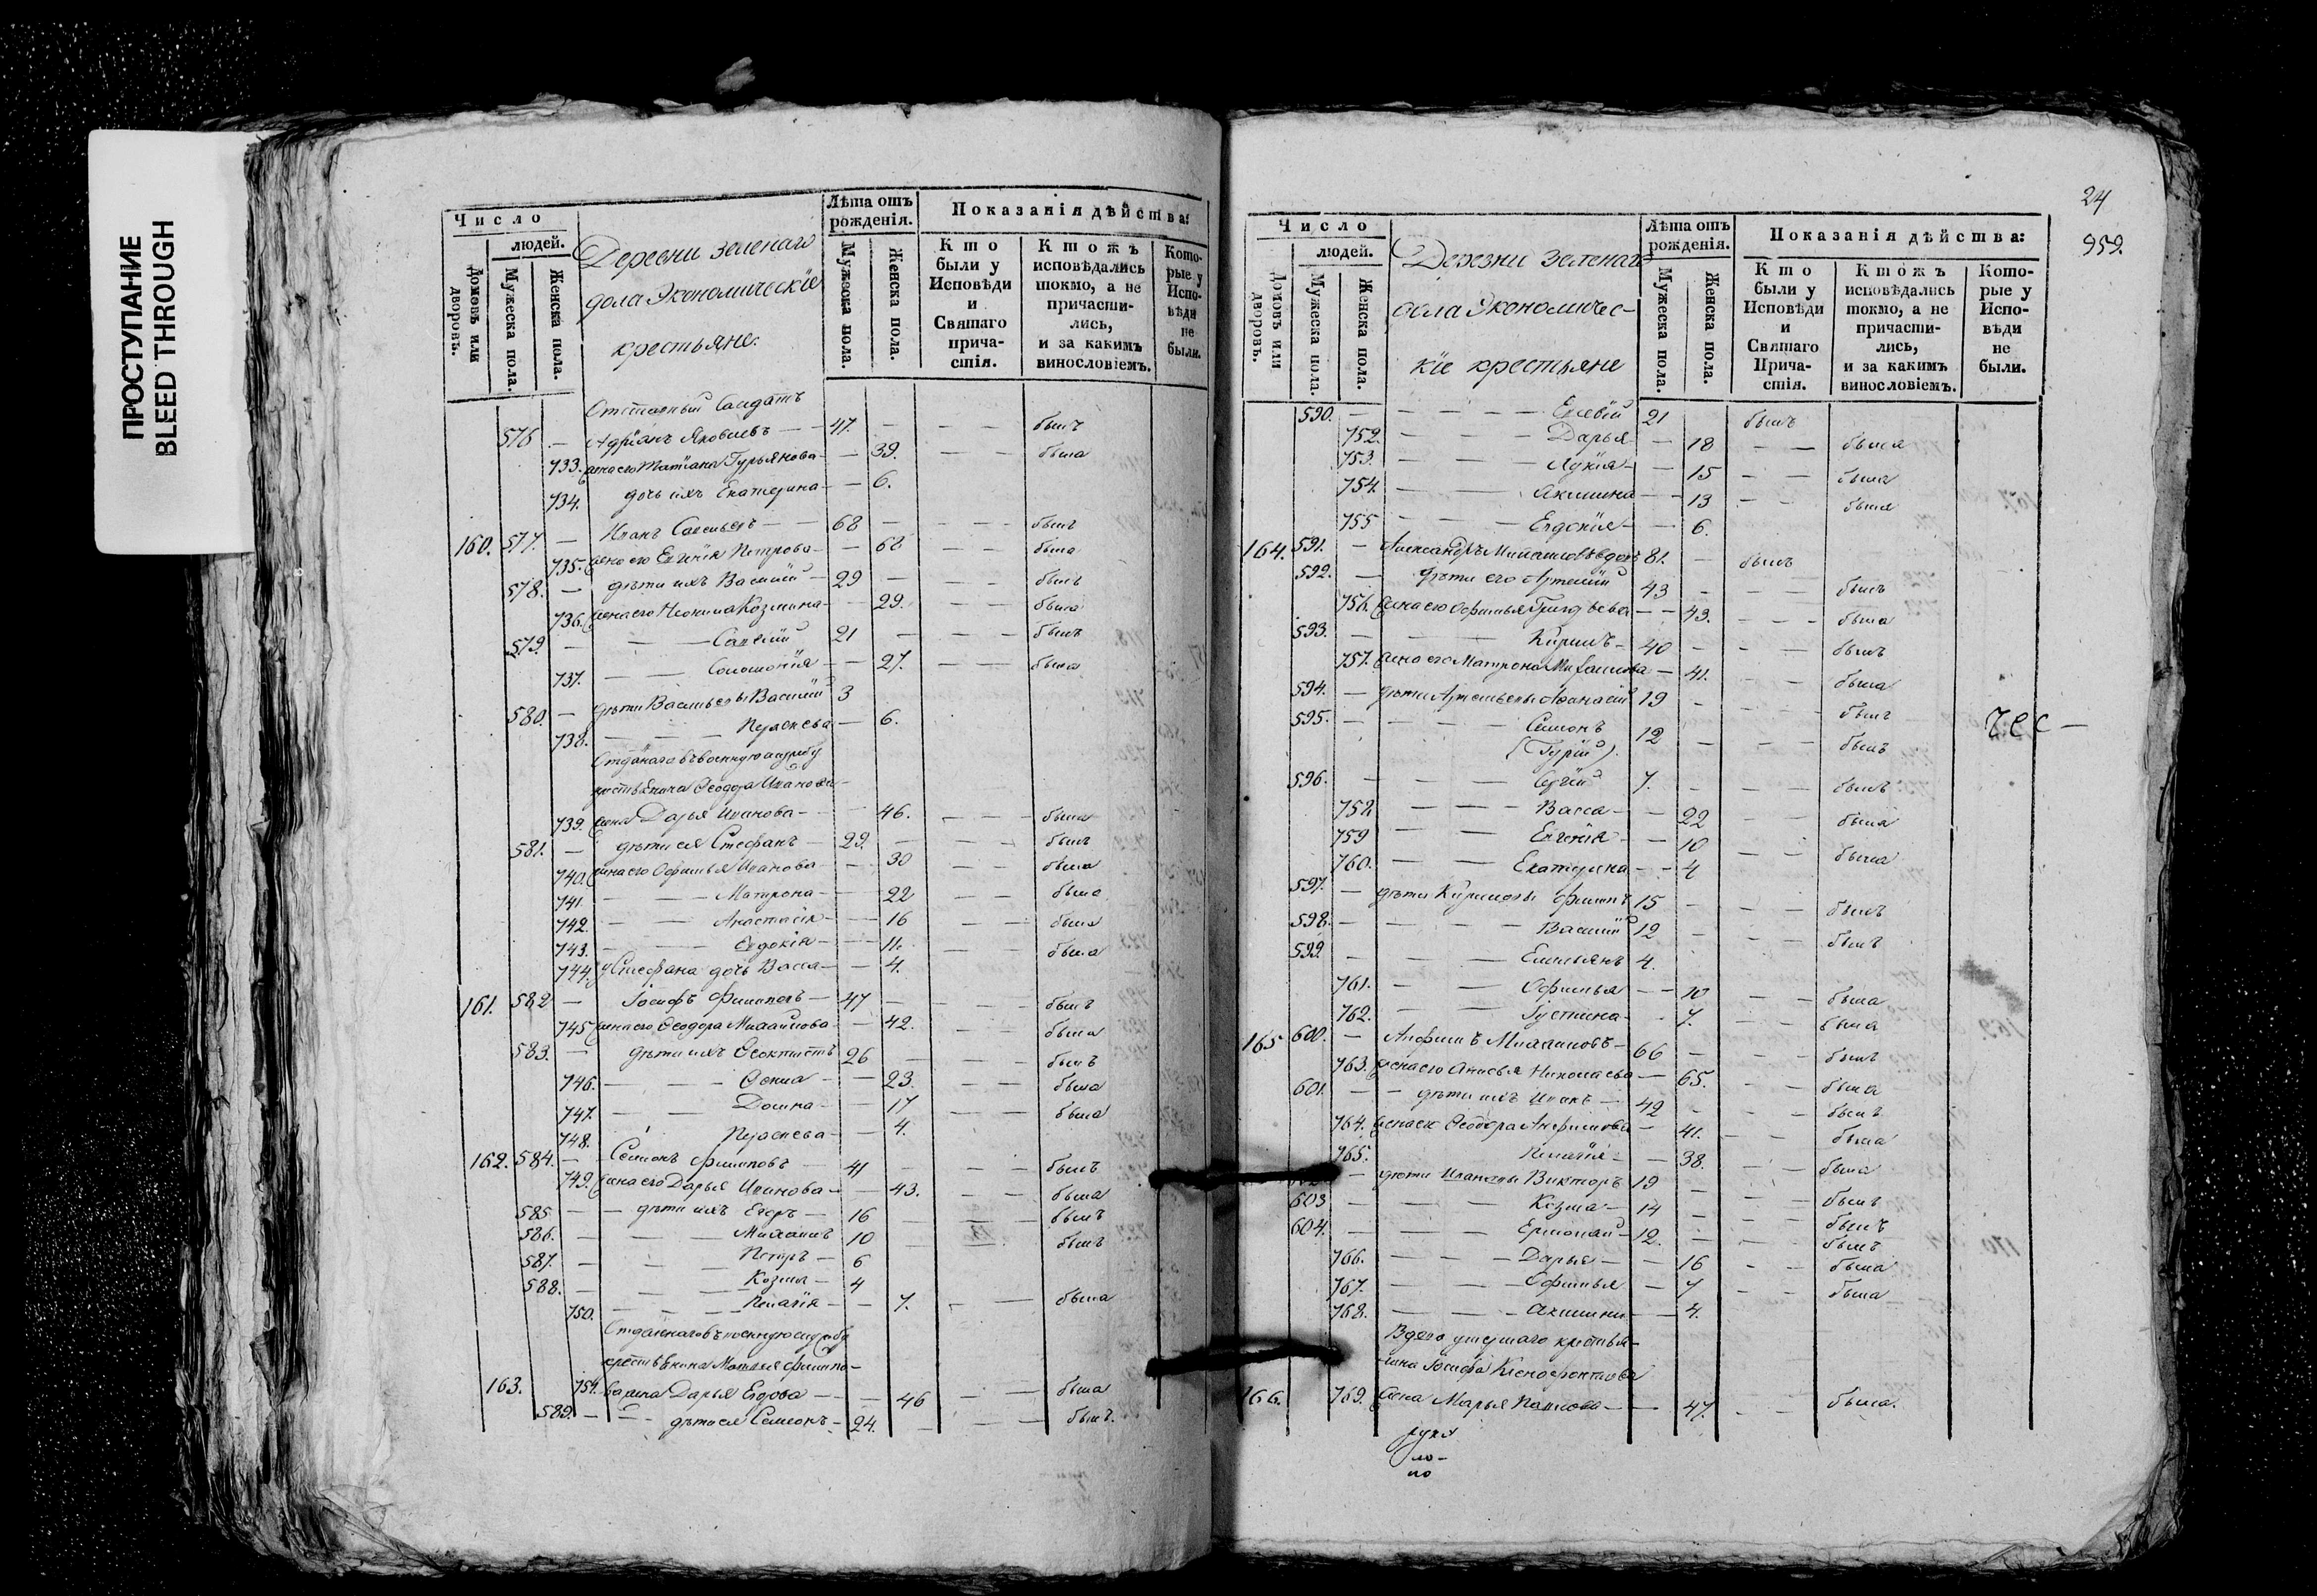 ПРОСТУПАНИЕ
BLEED THROUGH
Число
людей.
Домовъ или дворовъ.
Мужеска пола.
Женска пола.
Деревни Зеленаго
дола Экономическїе
крестьяне.
Лѣта отъ
рожденія.
Мужеска пола.
Женска пола.
Показанія дѣйства:
Кто
были у
Исповѣди
и
Святаго
прича-
стія.
Ктожъ
исповѣдались
токмо, а не
причасти-
лись,
и за какимъ
винословіемъ.
Кото-
рые у
Испо-
вѣди
не
были.
Отставный Салдатъ
576 — Адріанъ Яковлевъ — — 47. — — — былъ
733. жена его Татіана Гурьянова — — 39. — — была
734. дочь ихъ Екатерина — — 6.
160. 577. — Иванъ Савельевъ — — 68 — — — былъ
735. жена его Евгенїя Петрова — — 68 — — была
578. — дѣти ихъ Василїй — 29 — — — былъ
736. жена его Неонила Козмина — — 29. — — была
579. — — — Савелїй 21 — — — былъ
737. — — Соломонїя — — 27. — — была
580. — дѣти Васильевы Василїй 3
738. — — — Параскева — 6.
Отданаго въ военную службу
крестьянина Ѳеодора Иванова
739. жена Дарья Иванова — — 46. — — была
581. — дѣти ея Стефанъ — 29. — — — былъ
740. жена его Офимья Иванова — — 30 — — была
741. — — — Матрона — — 22 — — была
742. — — — Анастасїя — — 16 — — была
743. — — — Евдокїя — — 11. — — была
744. у Стефана дочь Васса — — 4.
161. 582 — Іосифъ Филиповъ — 47 — — — былъ
745 жена его Ѳеодора Михайлова — — 42. — — была
583. — дѣти ихъ Ѳеоктистъ 26 — — — былъ
746. — — — — 23. — — была
747. — — Домна — — 17 — — была
748. Параскева — — 4.
162. 584. — Семіонъ Филиповъ — 41 — — — былъ
749. жена его Дарья Иванова — — 43. — — была
585. — — дѣти ихъ Егоръ — 16 — — — былъ
586. — — — Михаилъ 10 — былъ
587. — — — Петръ — 6
588. — — — Козма — 4
750. — — — Пелагїя — — 7. — — была
Отданаго въ военную службу
крестьянина Матвея Филипо-
163. 751. ва жена Дарья Егорова — — 46 — — была
589. — — — дѣти ея Семіонъ — 24. — — — былъ
24
959.
Число
людей.
Домовъ или дворовъ.
Мужеска пола.
Женска пола.
Деревни Зеленаго
дола Экономичес-
кїе крестьяне
Лѣта отъ
рожденія.
Мужеска пола.
Женска пола.
Показанія дѣйства:
Кто
были у
Исповѣди
и
Святаго
Прича-
стія.
Ктожъ
исповѣдались
токмо, а не
причасти-
лись,
и за какимъ
винословіемъ.
Кото-
рые у
Испо-
вѣди
не
были.
590. — — — — — 21 былъ
752. — — — Дарья — 18 — — была
753. — — — Лукїя — — 15 — — была
754. — — — Акилина — — 13 — — была
755 — — — Евдокїя — — 6.
164. 591. — Александръ Михайловъ вдовъ 81. — былъ
592. — дѣти его Артемїй 43 — — — былъ
756. жена его Офимья Григорьева — — 43. — — — была
593. — — — Кирилъ — 40 — — — былъ
757. жена его Матрона Михайлова — 41. — — была
594. — дѣти Артемьевы Афанасїй 19 — — — былъ
595. — — — — Симіонъ 12 — — — былъ
(Гурїй).
596. — — — Сергїй 7. — — — былъ
752 — — — Васса — — 22 — — была
759 — — Евгенїя — — 10 — — была
760. — — Екатерина — — 4
597. — дѣти Кириловы Филипъ 15 — — — былъ
598. — — — — Василїй 12 — — — былъ
599. — — — Емельянъ 4.
761. — — Офимья — — 10 — — была
762. — — Іустина — 7. — — была
165 600. — Анфимъ Михайловъ — 66 — — — былъ
763. жена его Анисья Николаева — 65. — — была
601. — — дѣти ихъ Иванъ — 42 — — — былъ
764. жена его Ѳеодора Анфимова — 41. — — была
765. Пелагїя — — 38. — — была
— дѣти Ивановы Викторъ 19 — — — былъ
603 — — — Козма — 14 — — — былъ
604. — — — Ермолай — 12. — — — былъ
766. — — — Дарья — — 16 — — была
767. — — — Офимья — 7 — — была
768. — — — Акилина — — 4.
Вдова умершаго крестья-
нина Іосифа Ксенофонтова
166. 769. жена Марья Павлова — — 47. — — была.